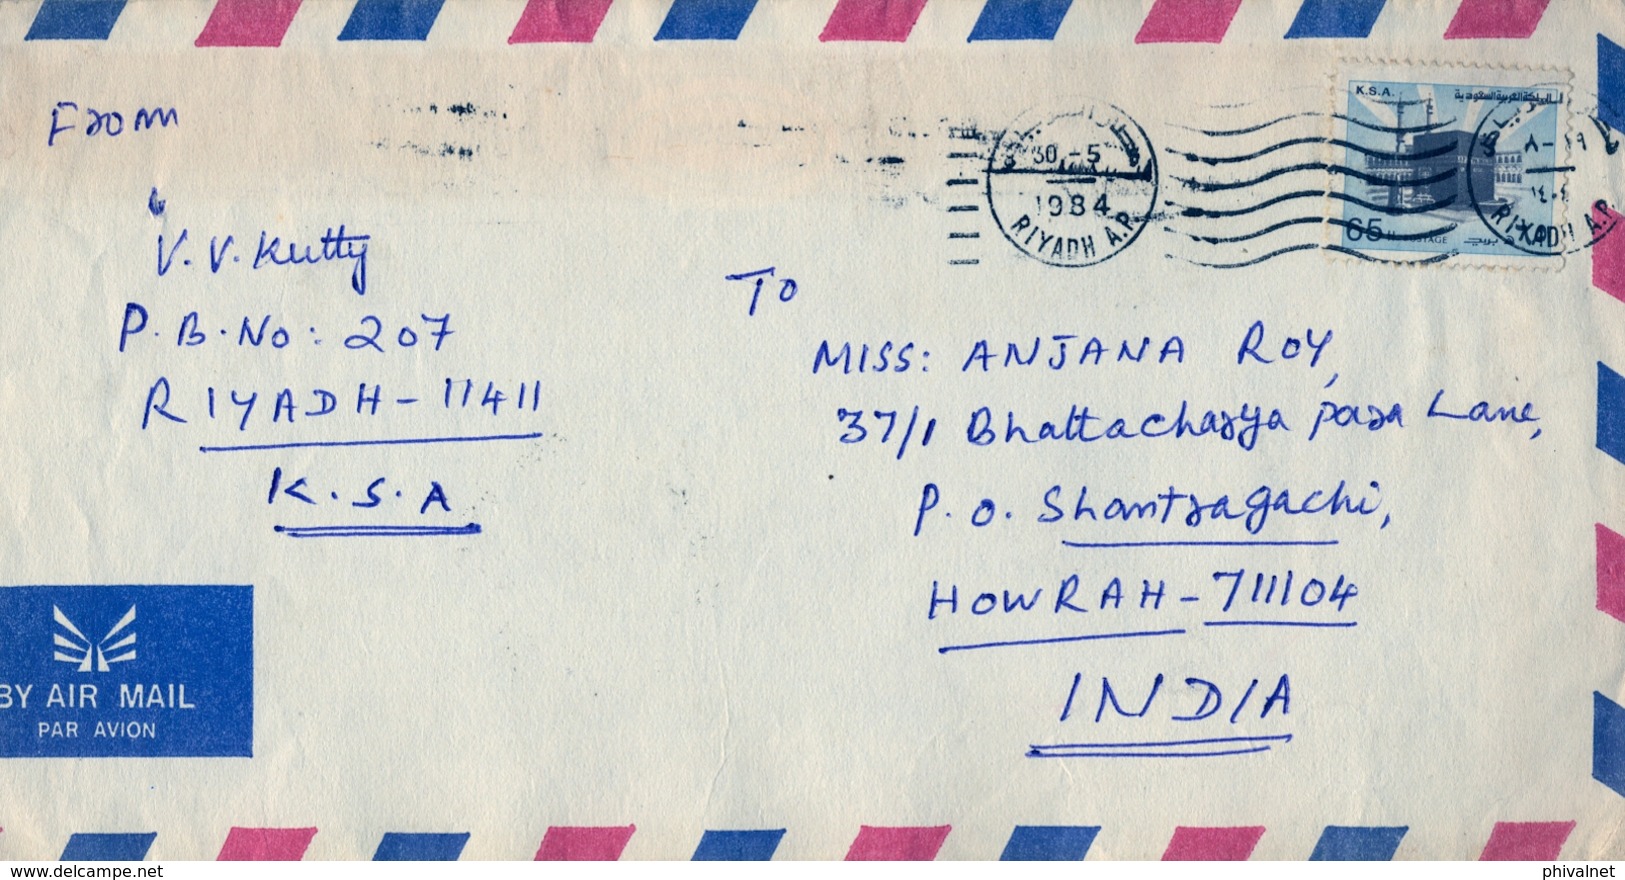 From
V. V. Kutty
P. B. No: 207
RIYADH - 11411
K. S. A
BY AIR MAIL
PAR AVION
30 - 5
1984
RIYADH A.P.
K.S.A.
المملكة العربية السعودية
65 H. POSTAGE
بريد
٨ - ٢٩
RIYADH A.P.
To
MISS: ANJANA ROY,
37/1 Bhattacharya para Lane,
P. O. Shantragachi,
HOWRAH - 711104
INDIA
www.delcampe.net
phivalnet